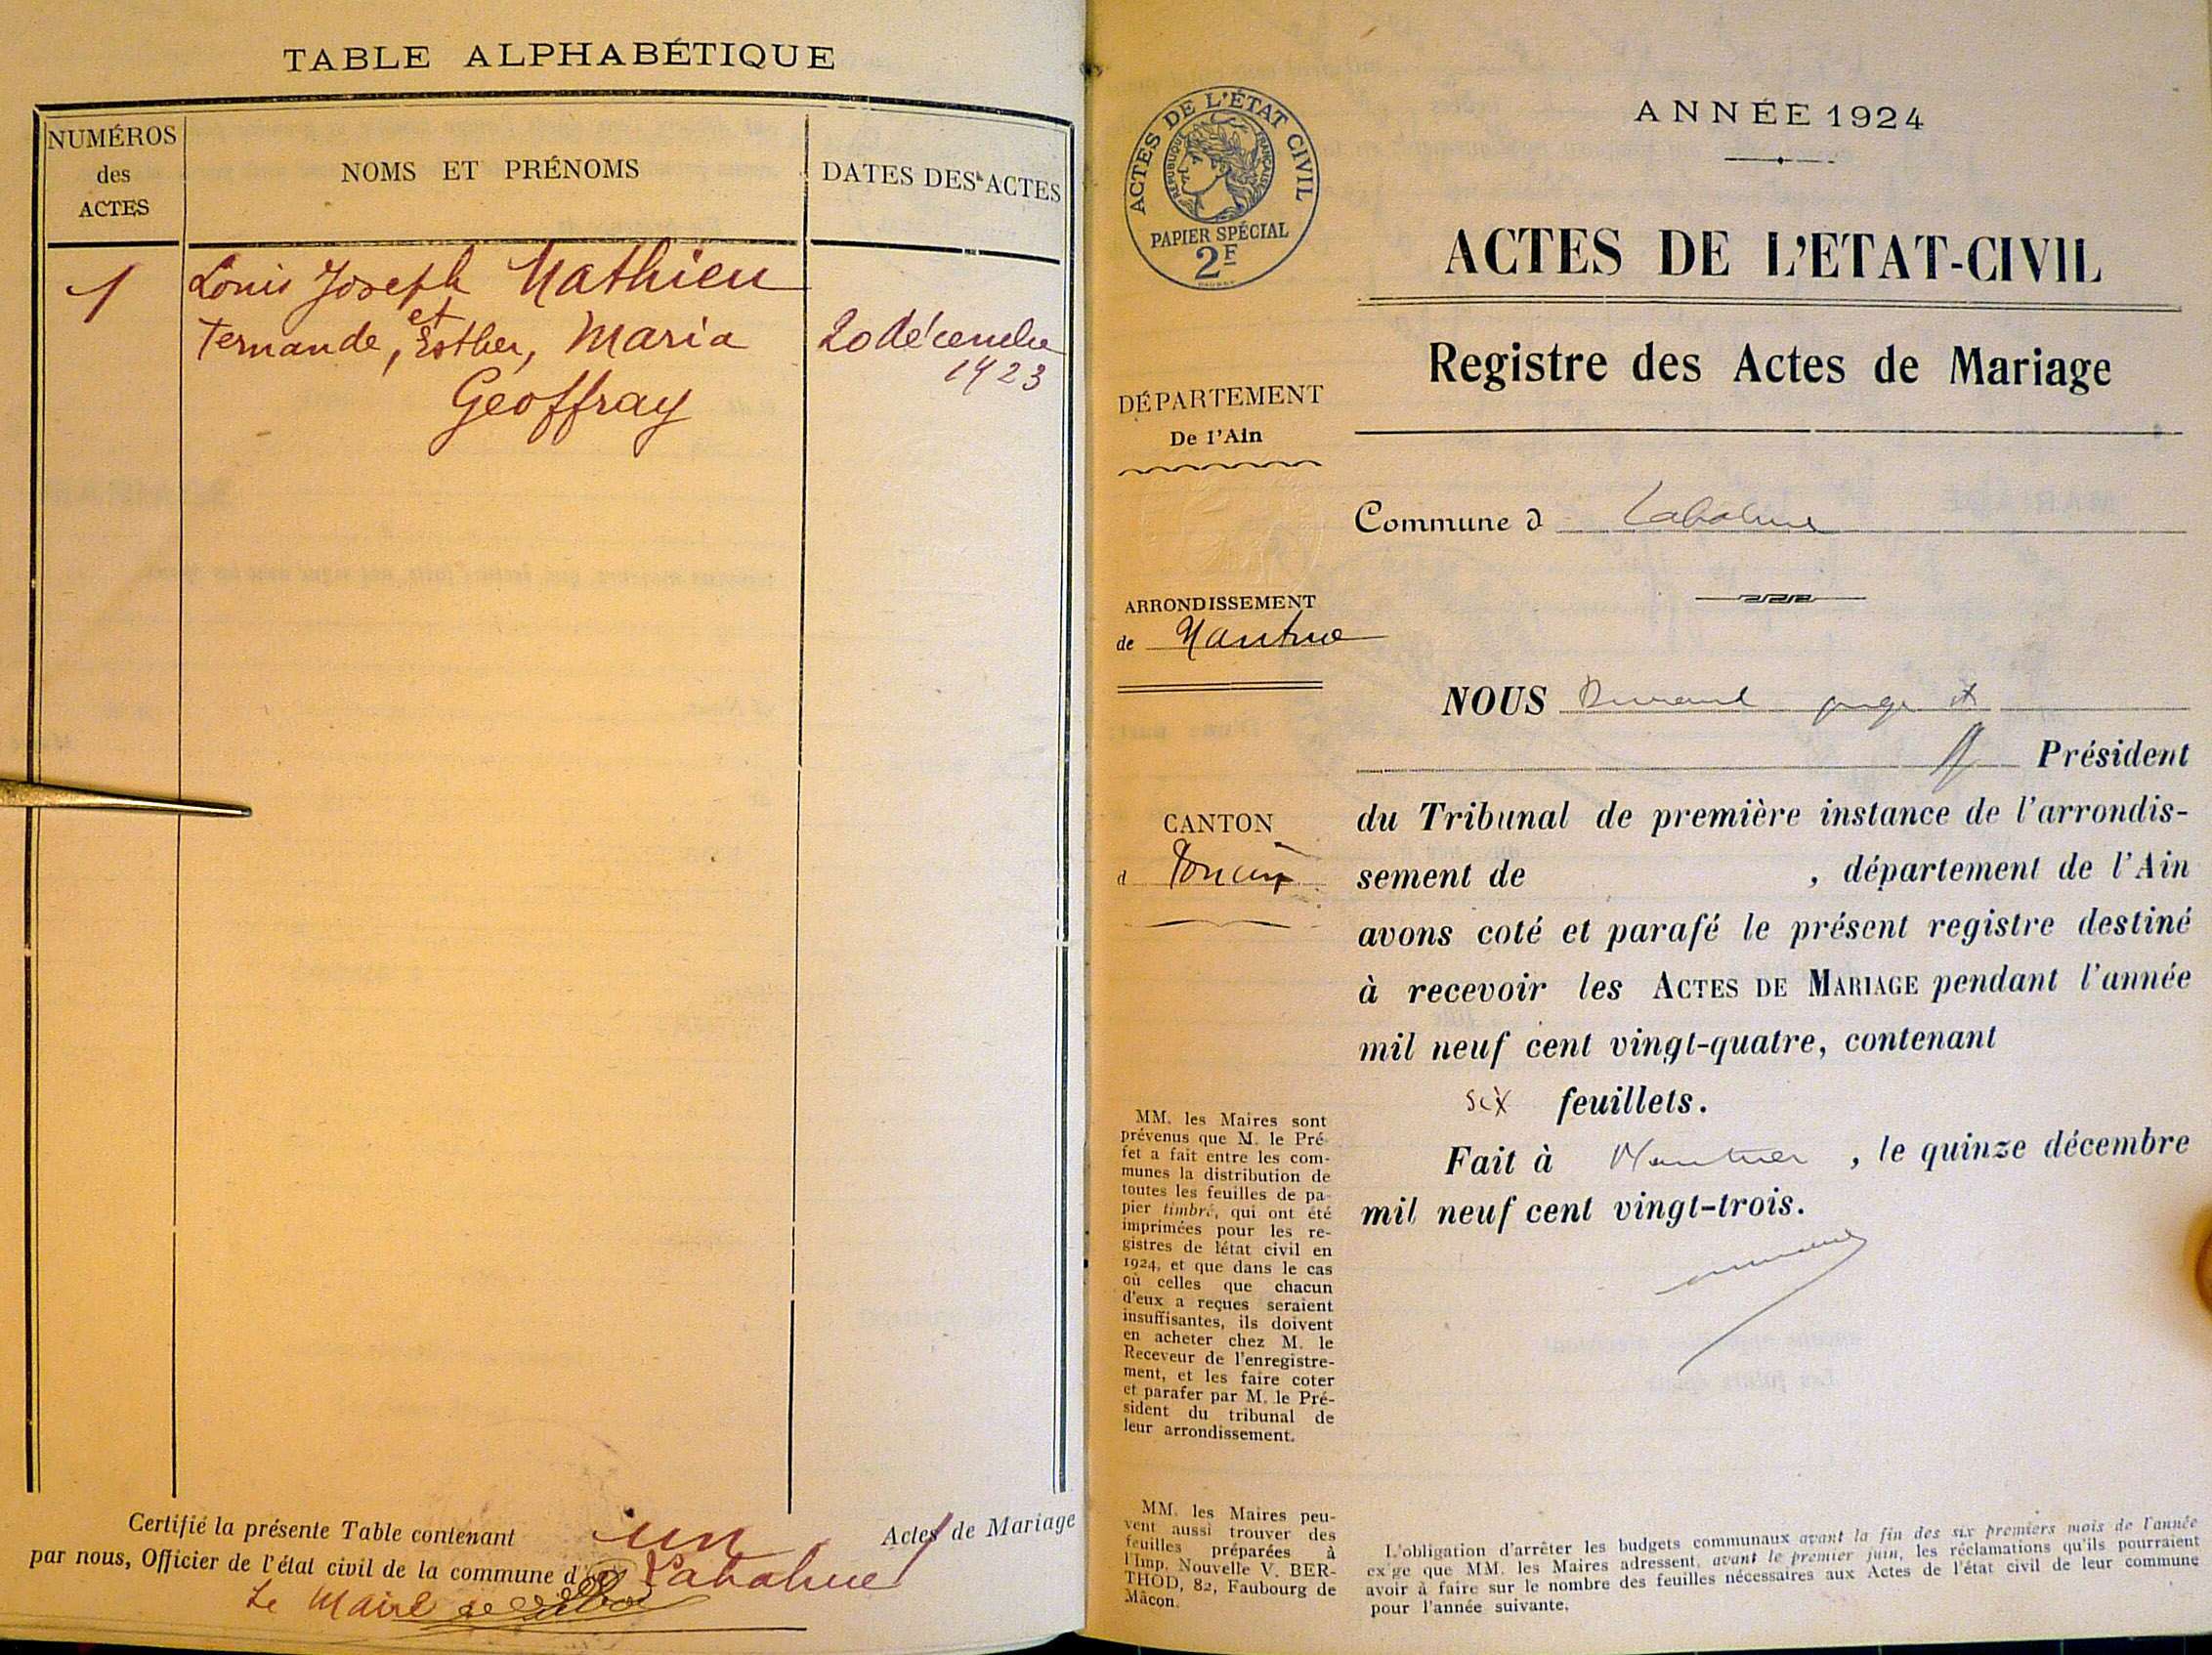 TABLE ALPHABÉTIQUE
NUMÉROS
des
ACTES
NOMS ET PRÉNOMS
DATES DES ACTES
1
Louis Joseph Mathieu
et
Fernande, Esther, Maria
Geoffray
20 décembre
1923
Certifié la présente Table contenant un Actes de Mariage
par nous, Officier de l'état civil de la commune d Labalme
Le Maire
ACTES DE L'ÉTAT CIVIL
RÉPUBLIQUE FRANÇAISE
PAPIER SPÉCIAL
2F
DÉPARTEMENT
De l'Ain
ARRONDISSEMENT
de Nantua
CANTON
d Poncin
MM. les Maires sont
prévenus que M. le Pré-
fet a fait entre les com-
munes la distribution de
toutes les feuilles de pa-
pier timbré, qui ont été
imprimées pour les re-
gistres de létat civil en
1924, et que dans le cas
où celles que chacun
d'eux a reçues seraient
insuffisantes, ils doivent
en acheter chez M. le
Receveur de l'enregistre-
ment, et les faire coter
et parafer par M. le Pré-
sident du tribunal de
leur arrondissement.
MM. les Maires peu-
vent aussi trouver des
feuilles préparées à
l'Imp. Nouvelle V. BER-
THOD, 82, Faubourg de
Mâcon.
ANNÉE 1924
ACTES DE L'ETAT-CIVIL
Registre des Actes de Mariage
Commune d Labalme
NOUS Durand juge
Président
du Tribunal de première instance de l'arrondis-
sement de , département de l'Ain
avons coté et parafé le présent registre destiné
à recevoir les ACTES DE MARIAGE pendant l'année
mil neuf cent vingt-quatre, contenant
six feuillets.
Fait à Nantua, le quinze décembre
mil neuf cent vingt-trois.
L'obligation d'arrêter les budgets communaux avant la fin des six premiers mois de l'année
ex'ge que MM. les Maires adressent, avant le premier juin, les réclamations qu'ils pourraient
avoir à faire sur le nombre des feuilles nécessaires aux Actes de l'état civil de leur commune
pour l'année suivante.